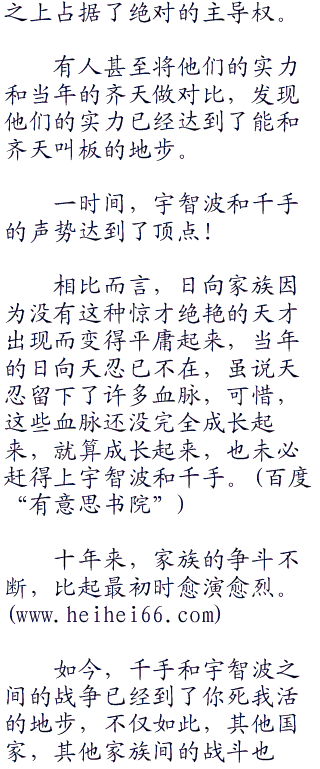 之上占据了绝对的主导权。
有人甚至将他们的实力
和当年的齐天做对比，发现
他们的实力已经达到了能和
齐天叫板的地步。
一时间，宇智波和千手
的声势达到了顶点！
相比而言，日向家族因
为没有这种惊才绝艳的天才
出现而变得平庸起来，当年
的日向天忍已不在，虽说天
忍留下了许多血脉，可惜，
这些血脉还没完全成长起
来，就算成长起来，也未必
赶得上宇智波和千手。(百度
“有意思书院”)
十年来，家族的争斗不
断，比起最初时愈演愈烈。
(www.heihei66.com)
如今，千手和宇智波之
间的战争已经到了你死我活
的地步，不仅如此，其他国
家，其他家族间的战斗也